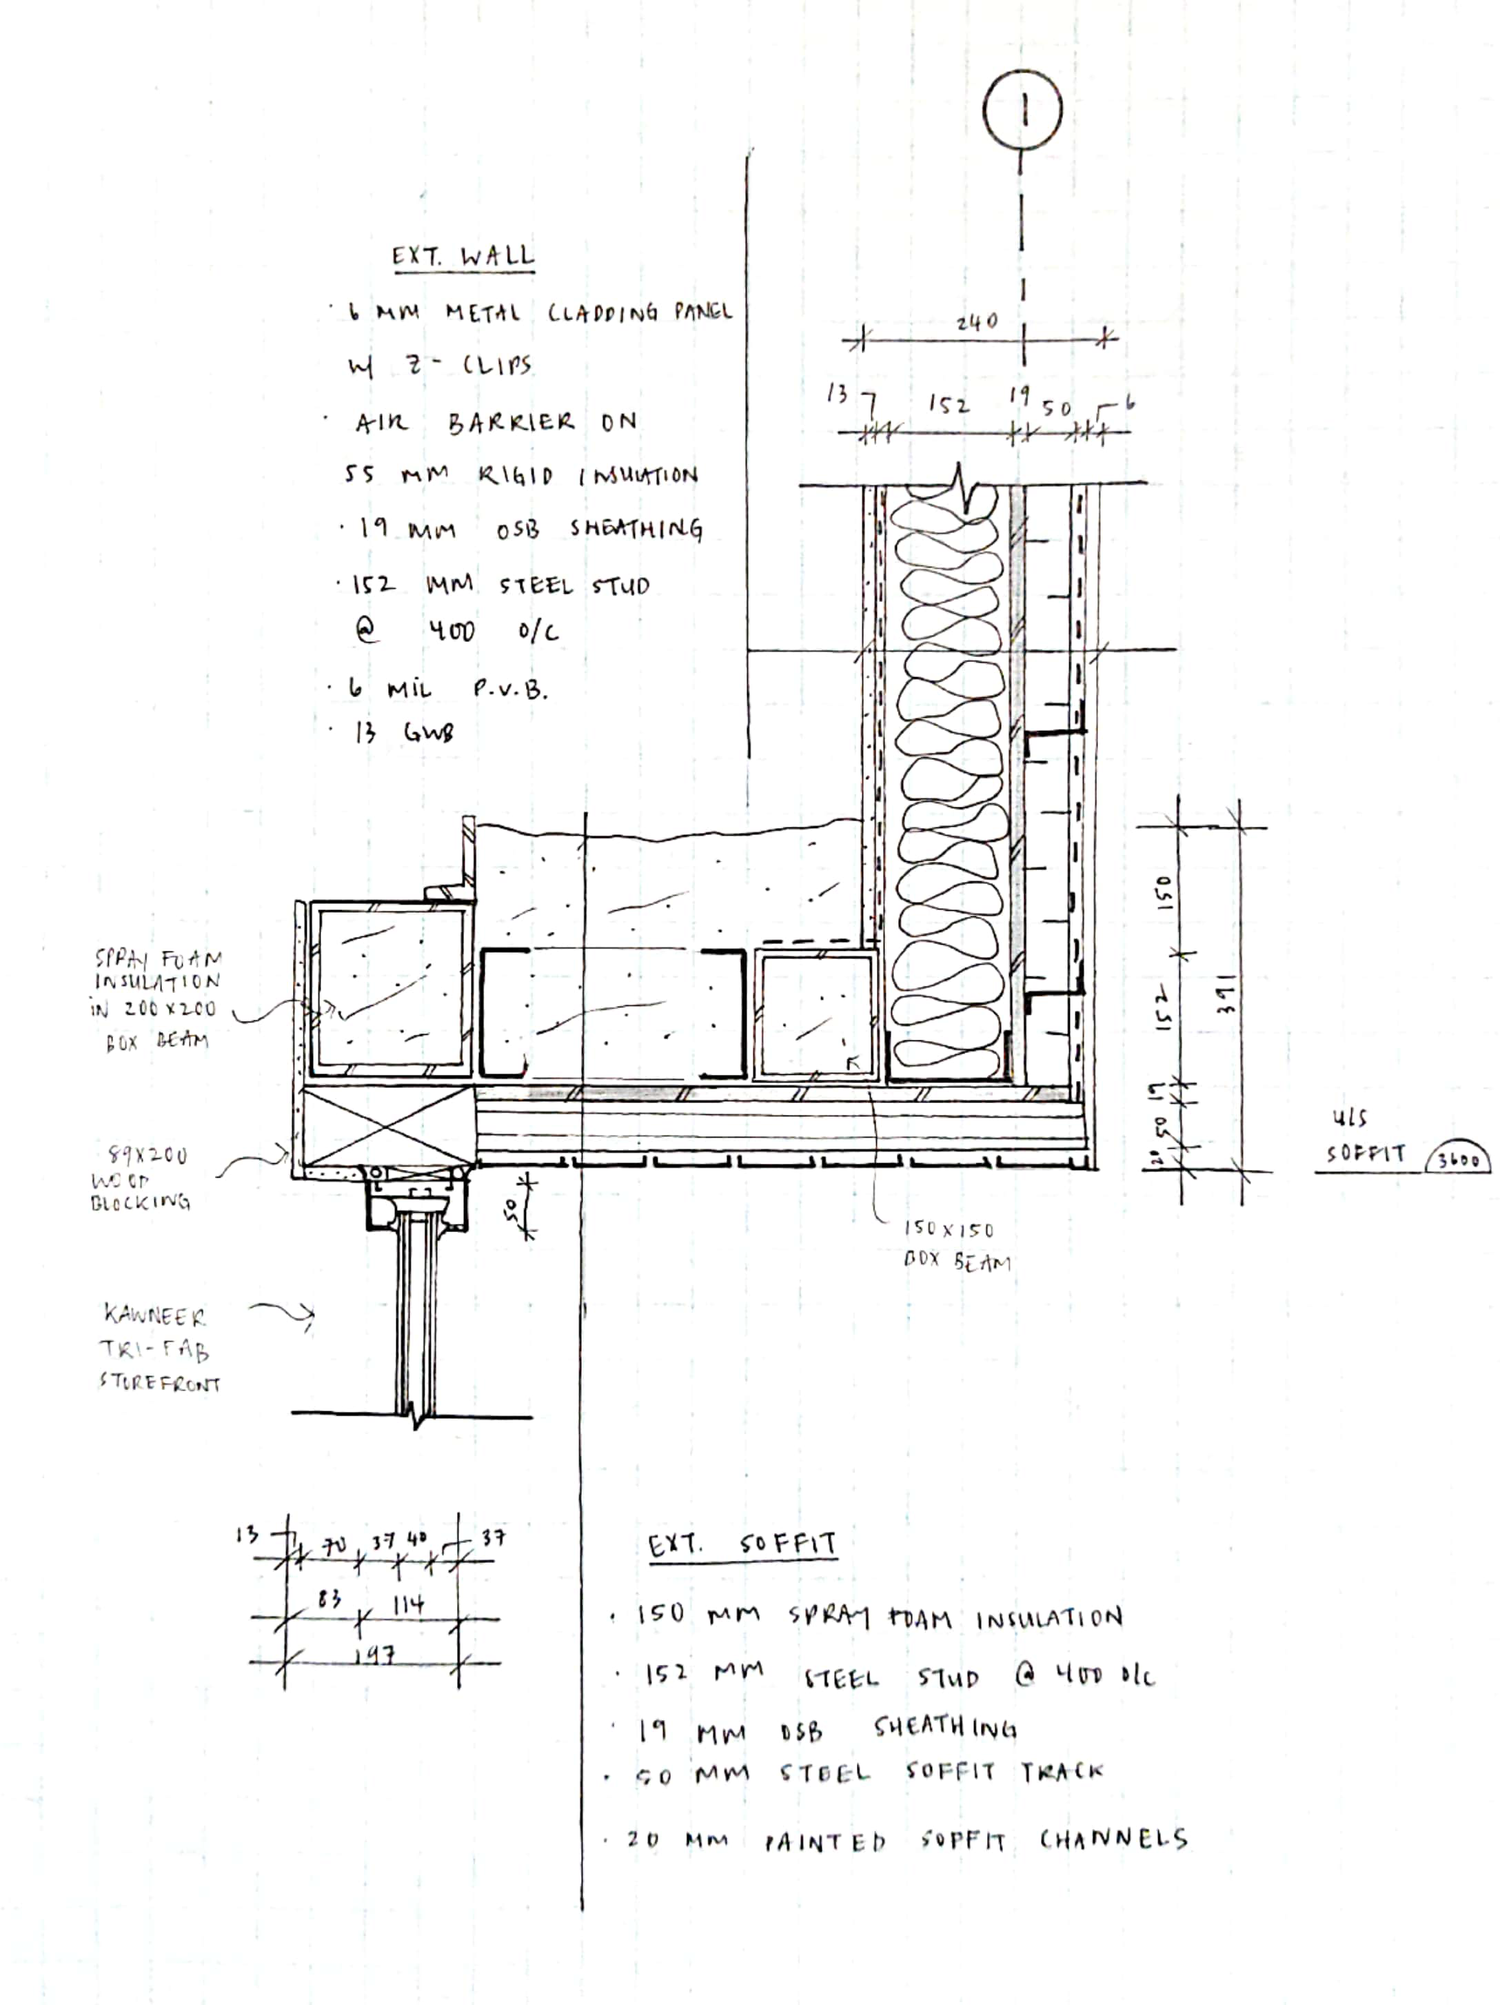 1
EXT. WALL
· 6 MM METAL CLADDING PANEL
W/ Z-CLIPS
· AIR BARRIER ON
55 MM RIGID INSULATION
· 19 MM OSB SHEATHING
· 152 MM STEEL STUD
@ 400 O/C
· 6 MIL P.V.B.
· 13 GWB
240
13
152
19
50
6
SPRAY FOAM
INSULATION
IN 200X200
BOX BEAM
89X200
WOOD
BLOCKING
KAWNEER
TRI-FAB
STOREFRONT
50
150X150
BOX BEAM
150
152
19
50
20
391
U/S
SOFFIT
3600
13
70
37
40
37
83
114
197
EXT. SOFFIT
· 150 MM SPRAY FOAM INSULATION
· 152 MM STEEL STUD @ 400 O/C
· 19 MM OSB SHEATHING
· 50 MM STEEL SOFFIT TRACK
· 20 MM PAINTED SOFFIT CHANNELS